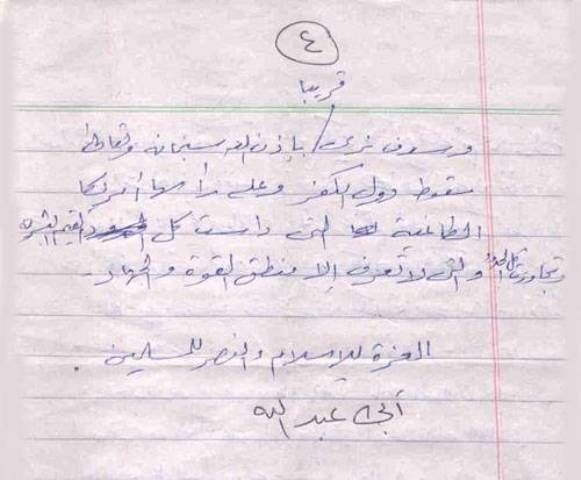 ٤
قريبا
وسوف نرى بإذن الله سبحانه وتعالى
سقوط دول الكفر وعلى رأسها أمريكا
الطاغية التي داست كل القيم البشرية
وتجاوزت كل الحدود والتي لا تعرف إلا منطق القوة والجهاد.
العزة للإسلام والنصر للمسلمين.
أبي عبد الله